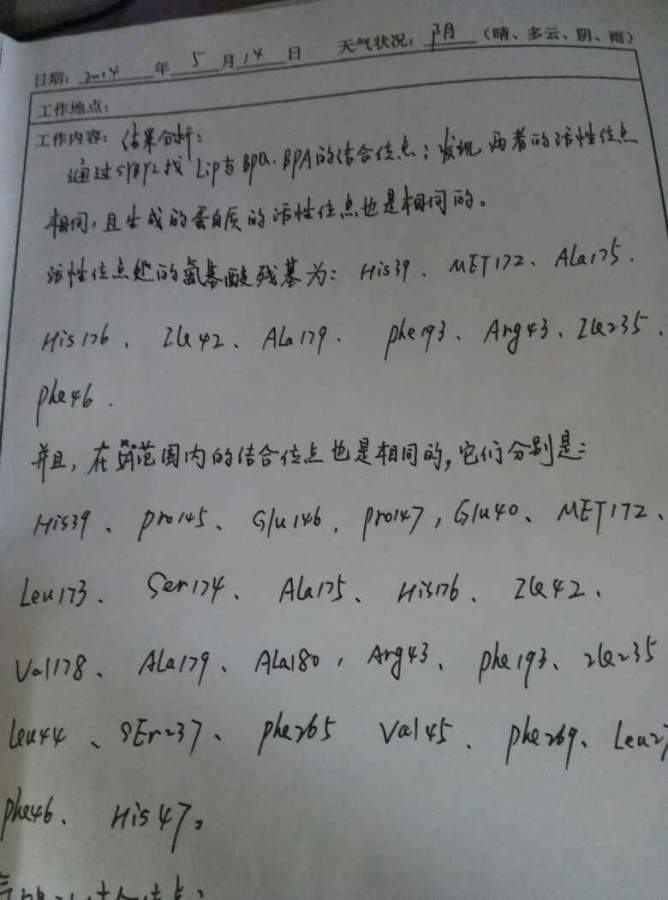 日期: 2014 年 5 月 14 日 天气状况: 阴 (晴、多云、阴、雨)
工作地点:
工作内容: 结果分析:
通过SYBYL找 Lip与 BPa. BPA的结合位点; 发现 两者的活性位点
相同, 且生成的蛋白质的活性位点也是相同的。
活性位点处的氨基酸残基为: His39 、 MET172、 Ala175、
His176 、 Ile42 、 Ala179、 phe193 、 Arg43 、 Ile235 、
phe46 .
并且, 在 5Å范围内的结合位点也是相同的, 它们分别是:
His39 、 pro145、 Glu146 、 pro147 , Glu40 、 MET172 、
Leu173 、 Ser174 、 Ala175 、 His176 、 Ile42 、
Val178 、 Ala179 、 Ala180 , Arg43 、 phe193 、 Ile235
Leu44 、 SEr237 、 phe265 Val45 、 phe269 、
phe46 、 His47 。
结合位点: